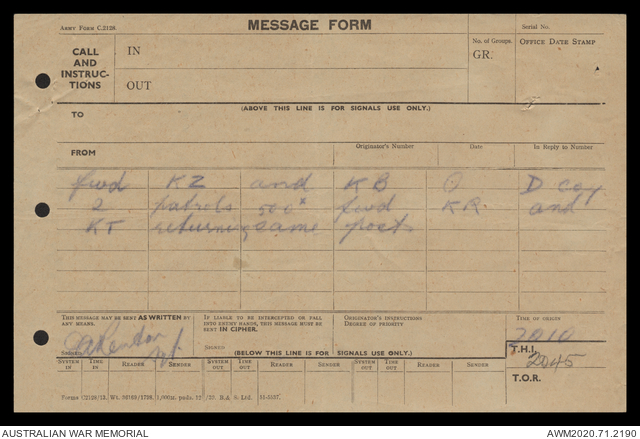 ARMY FORM C.2128.
MESSAGE FORM
Serial No.
CALL AND INSTRUC-TIONS
IN
OUT
No. of Groups.
GR.
OFFICE DATE STAMP
(ABOVE THIS LINE IS FOR SIGNALS USE ONLY.)
TO
FROM
Originator's Number
Date
In Reply to Number
fwd KZ and KB O D coy
2 patrols 500x fwd KR. and
KT returning same post
THIS MESSAGE MAY BE SENT AS WRITTEN BY ANY MEANS.
IF LIABLE TO BE INTERCEPTED OR FALL INTO ENEMY HANDS, THIS MESSAGE MUST BE SENT IN CIPHER.
ORIGINATOR'S INSTRUCTIONS DEGREE OF PRIORITY
TIME OF ORIGIN
2010
SIGNED
SIGNED
(BELOW THIS LINE IS FOR SIGNALS USE ONLY.)
T.H.I.
2045
SYSTEM IN TIME IN READER SENDER SYSTEM OUT TIME OUT READER SENDER SYSTEM OUT TIME OUT READER SENDER
T.O.R.
AUSTRALIAN WAR MEMORIAL
AWM2020.71.2190